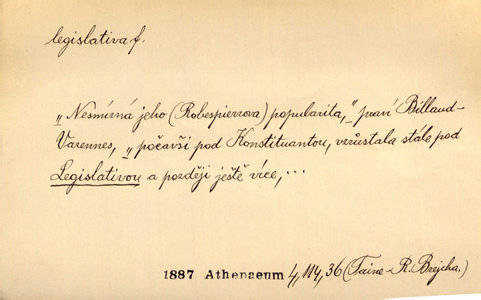 legislativa f.
„Nesmírná jeho (Robespierrova) popularita,“ praví Billaud-
Varennes, „počavši pod Konstituantou, vzrůstala stále pod
Legislativou a později ještě více,...
1887 Athenaeum 4, 114, 36 (Taine - R. Brejcha.)